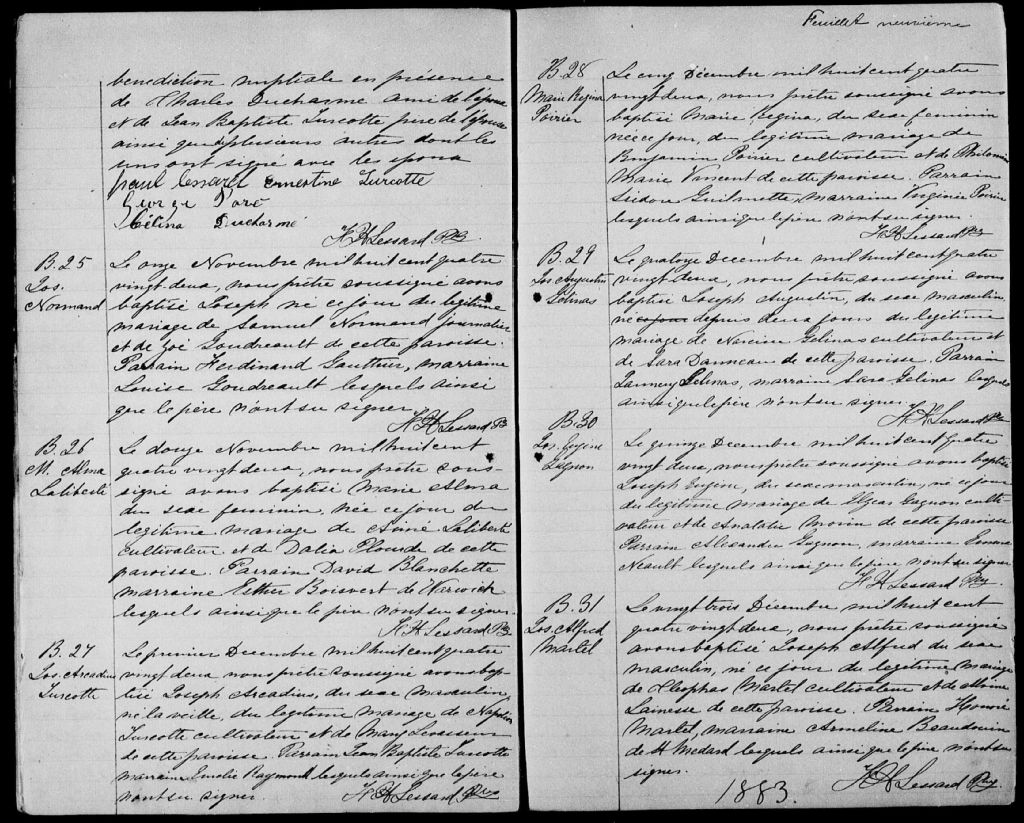 benediction nuptiale en présence
de Charles Ducharme ami de l'époux
et de Jean Baptiste Turcotte père de l'épouse
ainsi que plusieurs autres dont les
uns ont signé avec les epoux
paul ernestine Turcotte
George Doré
Délina Ducharme
H H Lessard Ptre
B. 25
Jos.
Normand
Le onze Novembre mil huit cent quatre
vingt deux, nous prêtre soussigné avons
baptisé Joseph né ce jour du légitime
mariage de Samuel Normand journalier
et de Zoé Goudreault de cette paroisse.
Parrain Ferdinand Gauthier, marraine
Louise Goudreault lesquels ainsi
que le père n'ont su signer.
H H Lessard Ptre
B. 26
M. Alma
Laliberté
Le douze Novembre mil huit cent
quatre vingt deux, nous prêtre sous-
signé avons baptisé Marie Alma
du sexe feminin, née ce jour du
legitime mariage de Aimé Laliberté
cultivateur et de Dalia Plourde de cette
paroisse. Parrain David Blanchette
marraine Esther Boisvert de Warwick
lesquels ainsi que le père n'ont su signer.
H H Lessard Ptre
B. 27
Jos. Arcadius
Turcotte
Le premier Decembre mil huit cent quatre
vingt deux nous prêtre soussigné avons bap-
tisé Joseph Arcadius, du sexe masculin,
né la veille, du legitime mariage de Napoléon
Turcotte cultivateur et de Mary Levasseur
de cette paroisse. Parrain Jean Baptiste Turcotte
marraine Emelie Raymond lesquels ainsi que le père
n'ont su signer.
H H Lessard Ptre
Feuillet neuvième
B. 28
Marie Regina
Poirier
Le cinq Décembre mil huit cent quatre
vingt deux, nous prêtre soussigné avons
baptisé Marie Regina, du sexe feminin
née ce jour, du legitime mariage de
Benjamin Poirier cultivateur et de Philomène
Marie Vincent de cette paroisse. Parrain
Isidore Guilmette, marraine Virginie Poirier
lesquels ainsi que le père n'ont su signer.
H H Lessard Ptre
B. 29
Jos Augustin
Gélinas
Le quatorze Decembre mil huit cent quatre
vingt deux, nous prêtre soussigné avons
baptisé Joseph Augustin, du sexe masculin,
né ce jour depuis deux jours du legitime
mariage de Narcisse Gélinas cultivateur et
de Sara Danneau de cette paroisse. Parrain
Gélinas, marraine Sara Gelinas lesquels
ainsi que le père n'ont su signer.
H H Lessard Ptre
B. 30
Jos. Eugène
Gagnon
Le quinze Decembre mil huit cent quatre
vingt deux, nous prêtre soussigné avons baptisé
Joseph Eugène, du sexe masculin, né ce jour
du legitime mariage de Gagnon culti-
vateur et de Anatalie Morin de cette paroisse
Parrain Alexandre Gagnon, marraine
Neault lesquels ainsi que le père n'ont su signer
H H Lessard Ptre
B. 31
Jos. Alfred
Martel
Le vingt trois Décembre mil huit cent
quatre vingt deux, nous prêtre soussigné
avons baptisé Joseph Alfred du sexe
masculin, né ce jour du legitime mariage
de Cléophas Martel cultivateur et de
Lainesse de cette paroisse. Parrain Honoré
Martel, marraine Armeline Beaudouin
de St Medard lesquels ainsi que le père n'ont su
signer.
H H Lessard Ptre
1883.